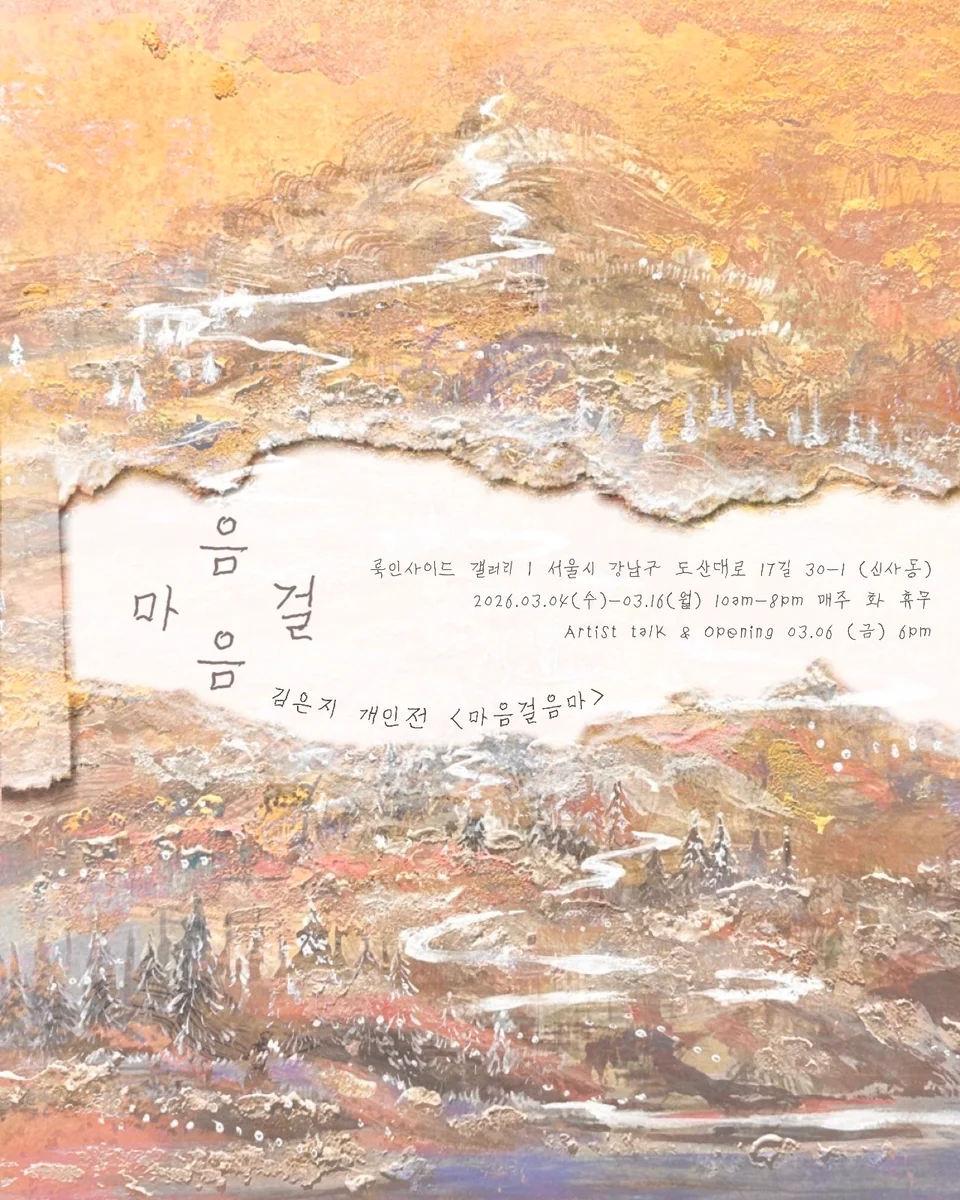 음
마 걸
음
룩인사이드 갤러리 | 서울시 강남구 도산대로 17길 30-1 (신사동)
2026.03.04(수)-03.16(월) 10am-8pm 매주 화 휴무
Artist talk & Opening 03.06 (금) 6pm
김은지 개인전 <마음걸음마>